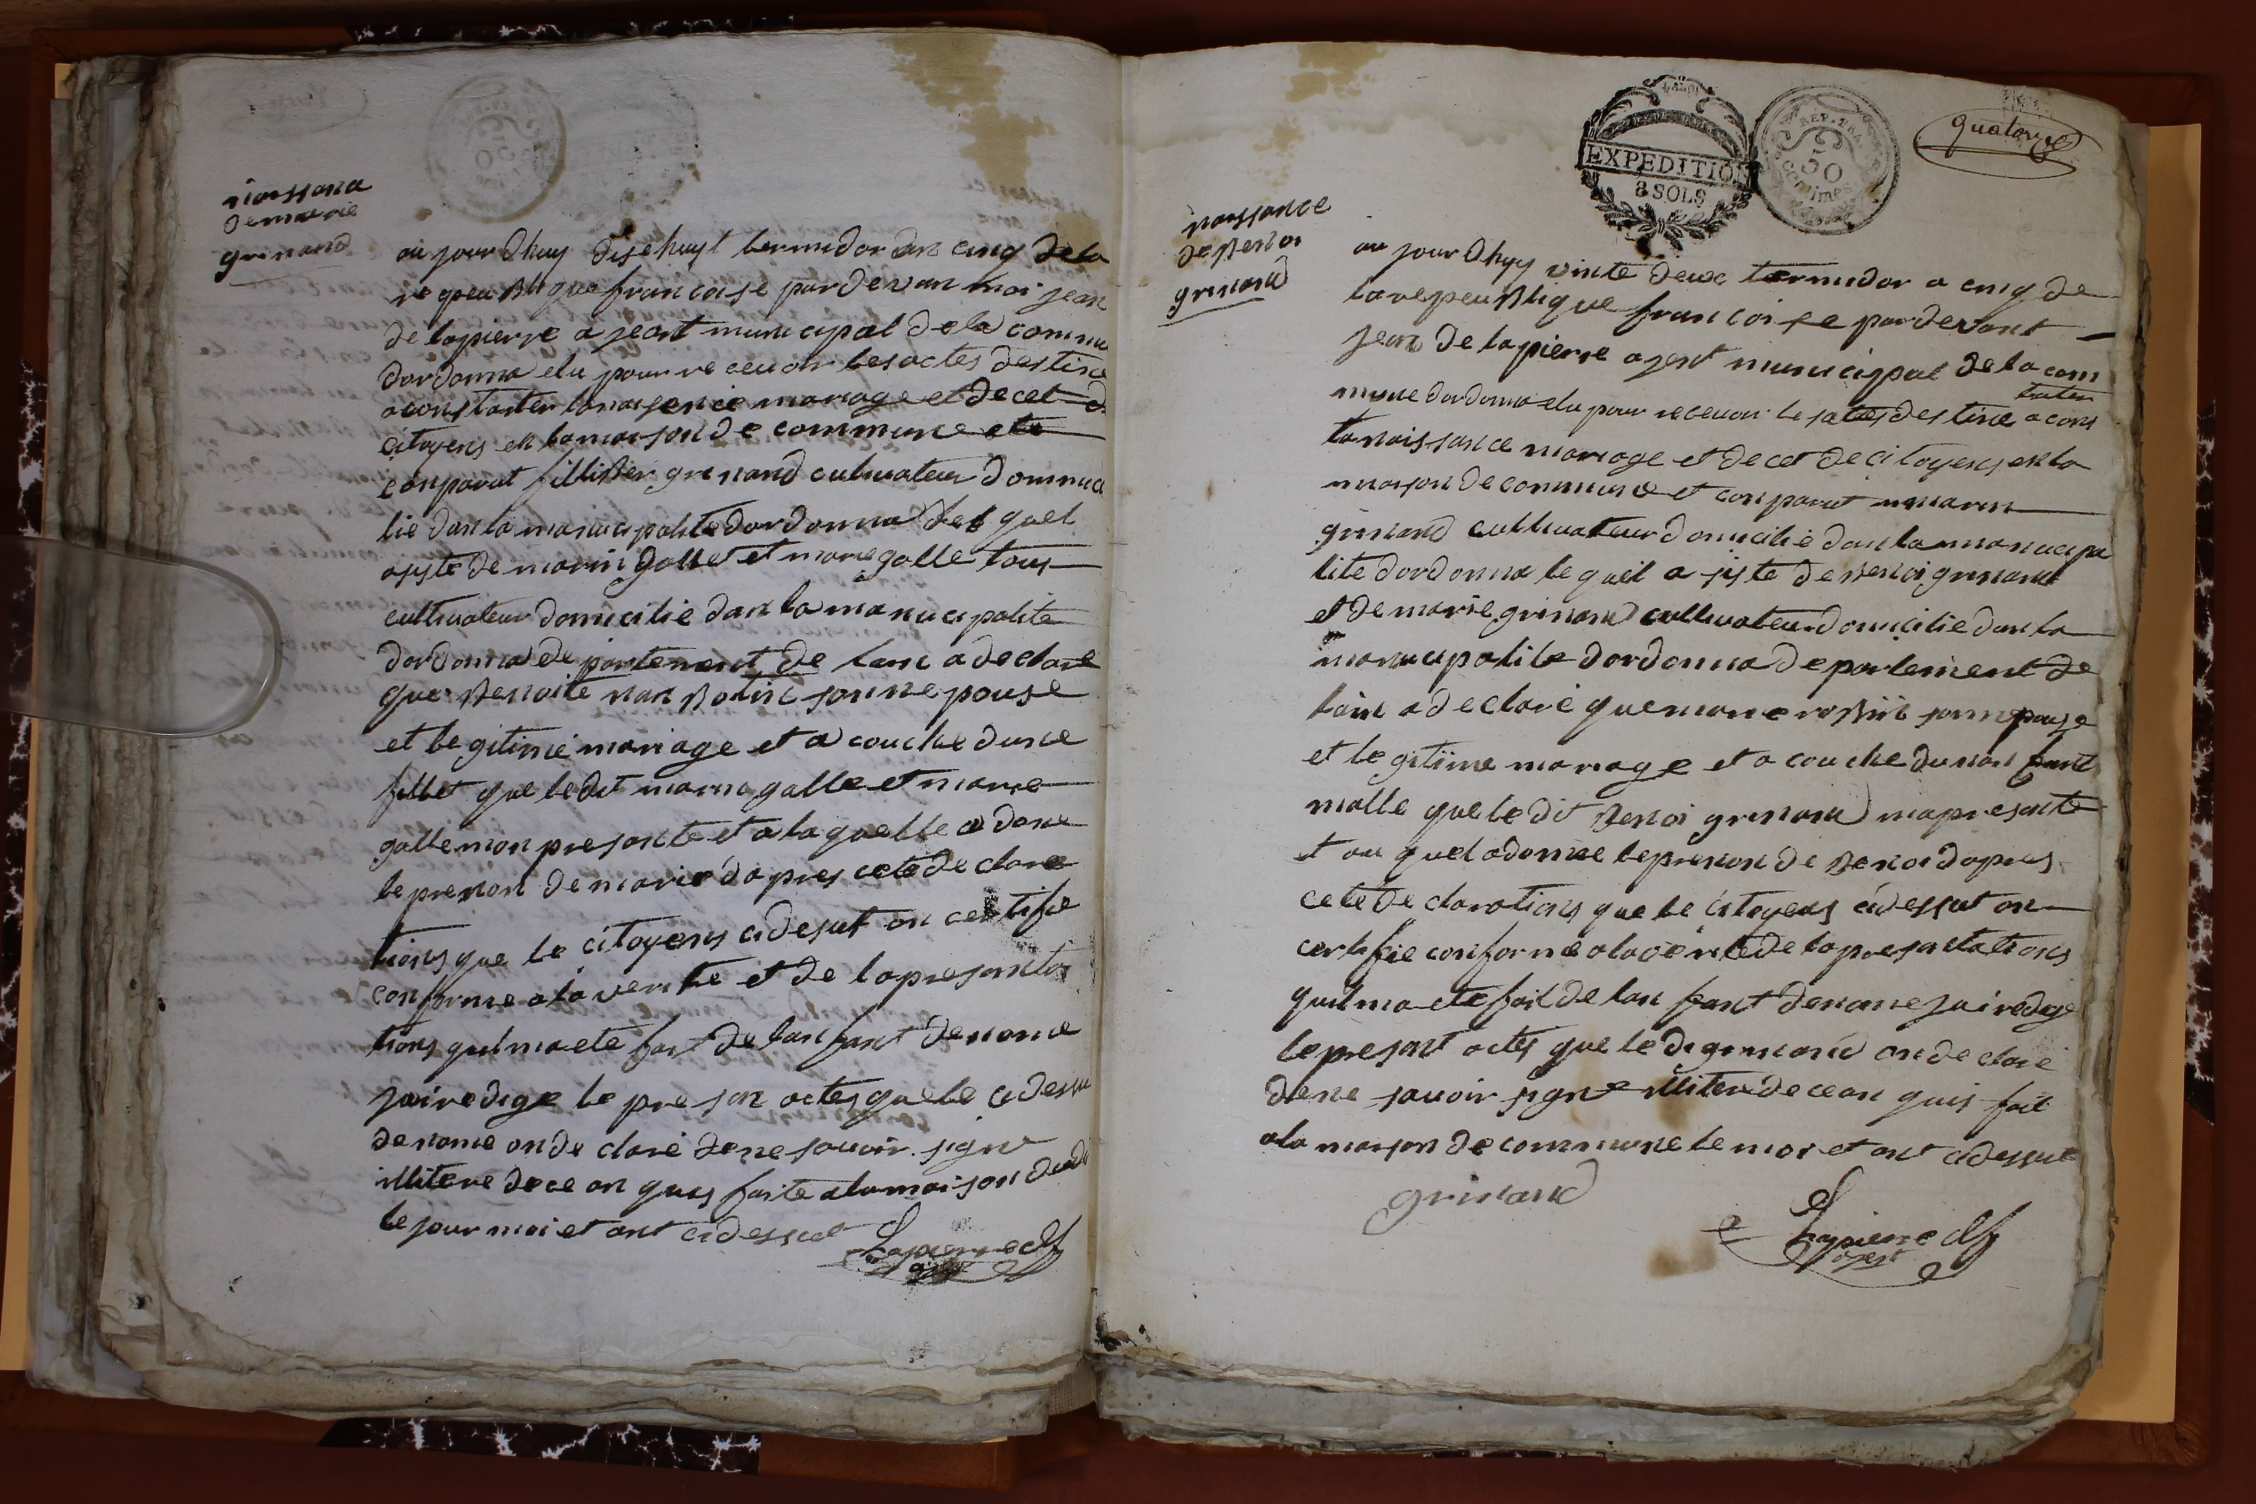 naissana
de marie
grinand
au jour dhuy disehuyt termidor dan cinq de la
re peu Blique francoise par devan moi jean
de lapierre ajeant municipal de la commu
dordonna elu pour re cevoir les actes destine
a constater la naisence mariage et decet d
citoyens en la maison de commune et
conparut filliBer grinand cultivateur dommici
lie dan la manucipalite dordonna les quel
asiste de marin galle et marie galle tous
cultivateur domicilie dan la manucipalite
dordonna departement de lain a declare
que Benoite nan Botine sonne pouse
et legitime mariage et a couche dune
fillet que le dit marin galle et marie
galle mon presante et a laquelle a done
le prenon de marie dapres cete declara
tions que le citoyens cidesut on certifie
conforme a la verite et de la presanta
tions quil ma ete fait de lan fant denome
jai redige le presan actes que le cidessu
denome on de claré de ne savoir signe
illitere de ce on quis faite a la maison dudi
le jour moi et ant cidessut
Lapierre
agent
EXPEDITION
8 SOLS
REP. FRA.
50
centimes
quatorze
naissance
de Benoi
grinand
au jour dhuy vinte deux termidor a cinq de
la repeu Blique francoise par devant
jean de lapierre ajent municipal de la com
mune dordonna elu pour recevoir les actes destine a cons
tater
la naissance mariage et decet de citoyens en la
maison de commune et conparut marin
grinand cultivateur domicilie dan la manucipa
lite dordonna le quel a siste de Benoi grinand
et de marie grinand cultivateur domicilie dan la
manucipalite dordonna departement de
lain a declaré que marie roBin sonne pouse
et le gitime mariage et a couche dunan fant
malle que le dit Benoi grinand ma presante
et au quel a donne le prenon de Benoi dapres
cete de clarations que le citoyens cidessut on
certifie conforme a la verite de la presantations
quil ma ete fait de lan fant denome jai redige
le presant actes que le di grinand on de claré
de ne savoir signe illitere de ce on quis fait
a la maison de commune le moi et ant cidessut
grinand
Lapierre
agent